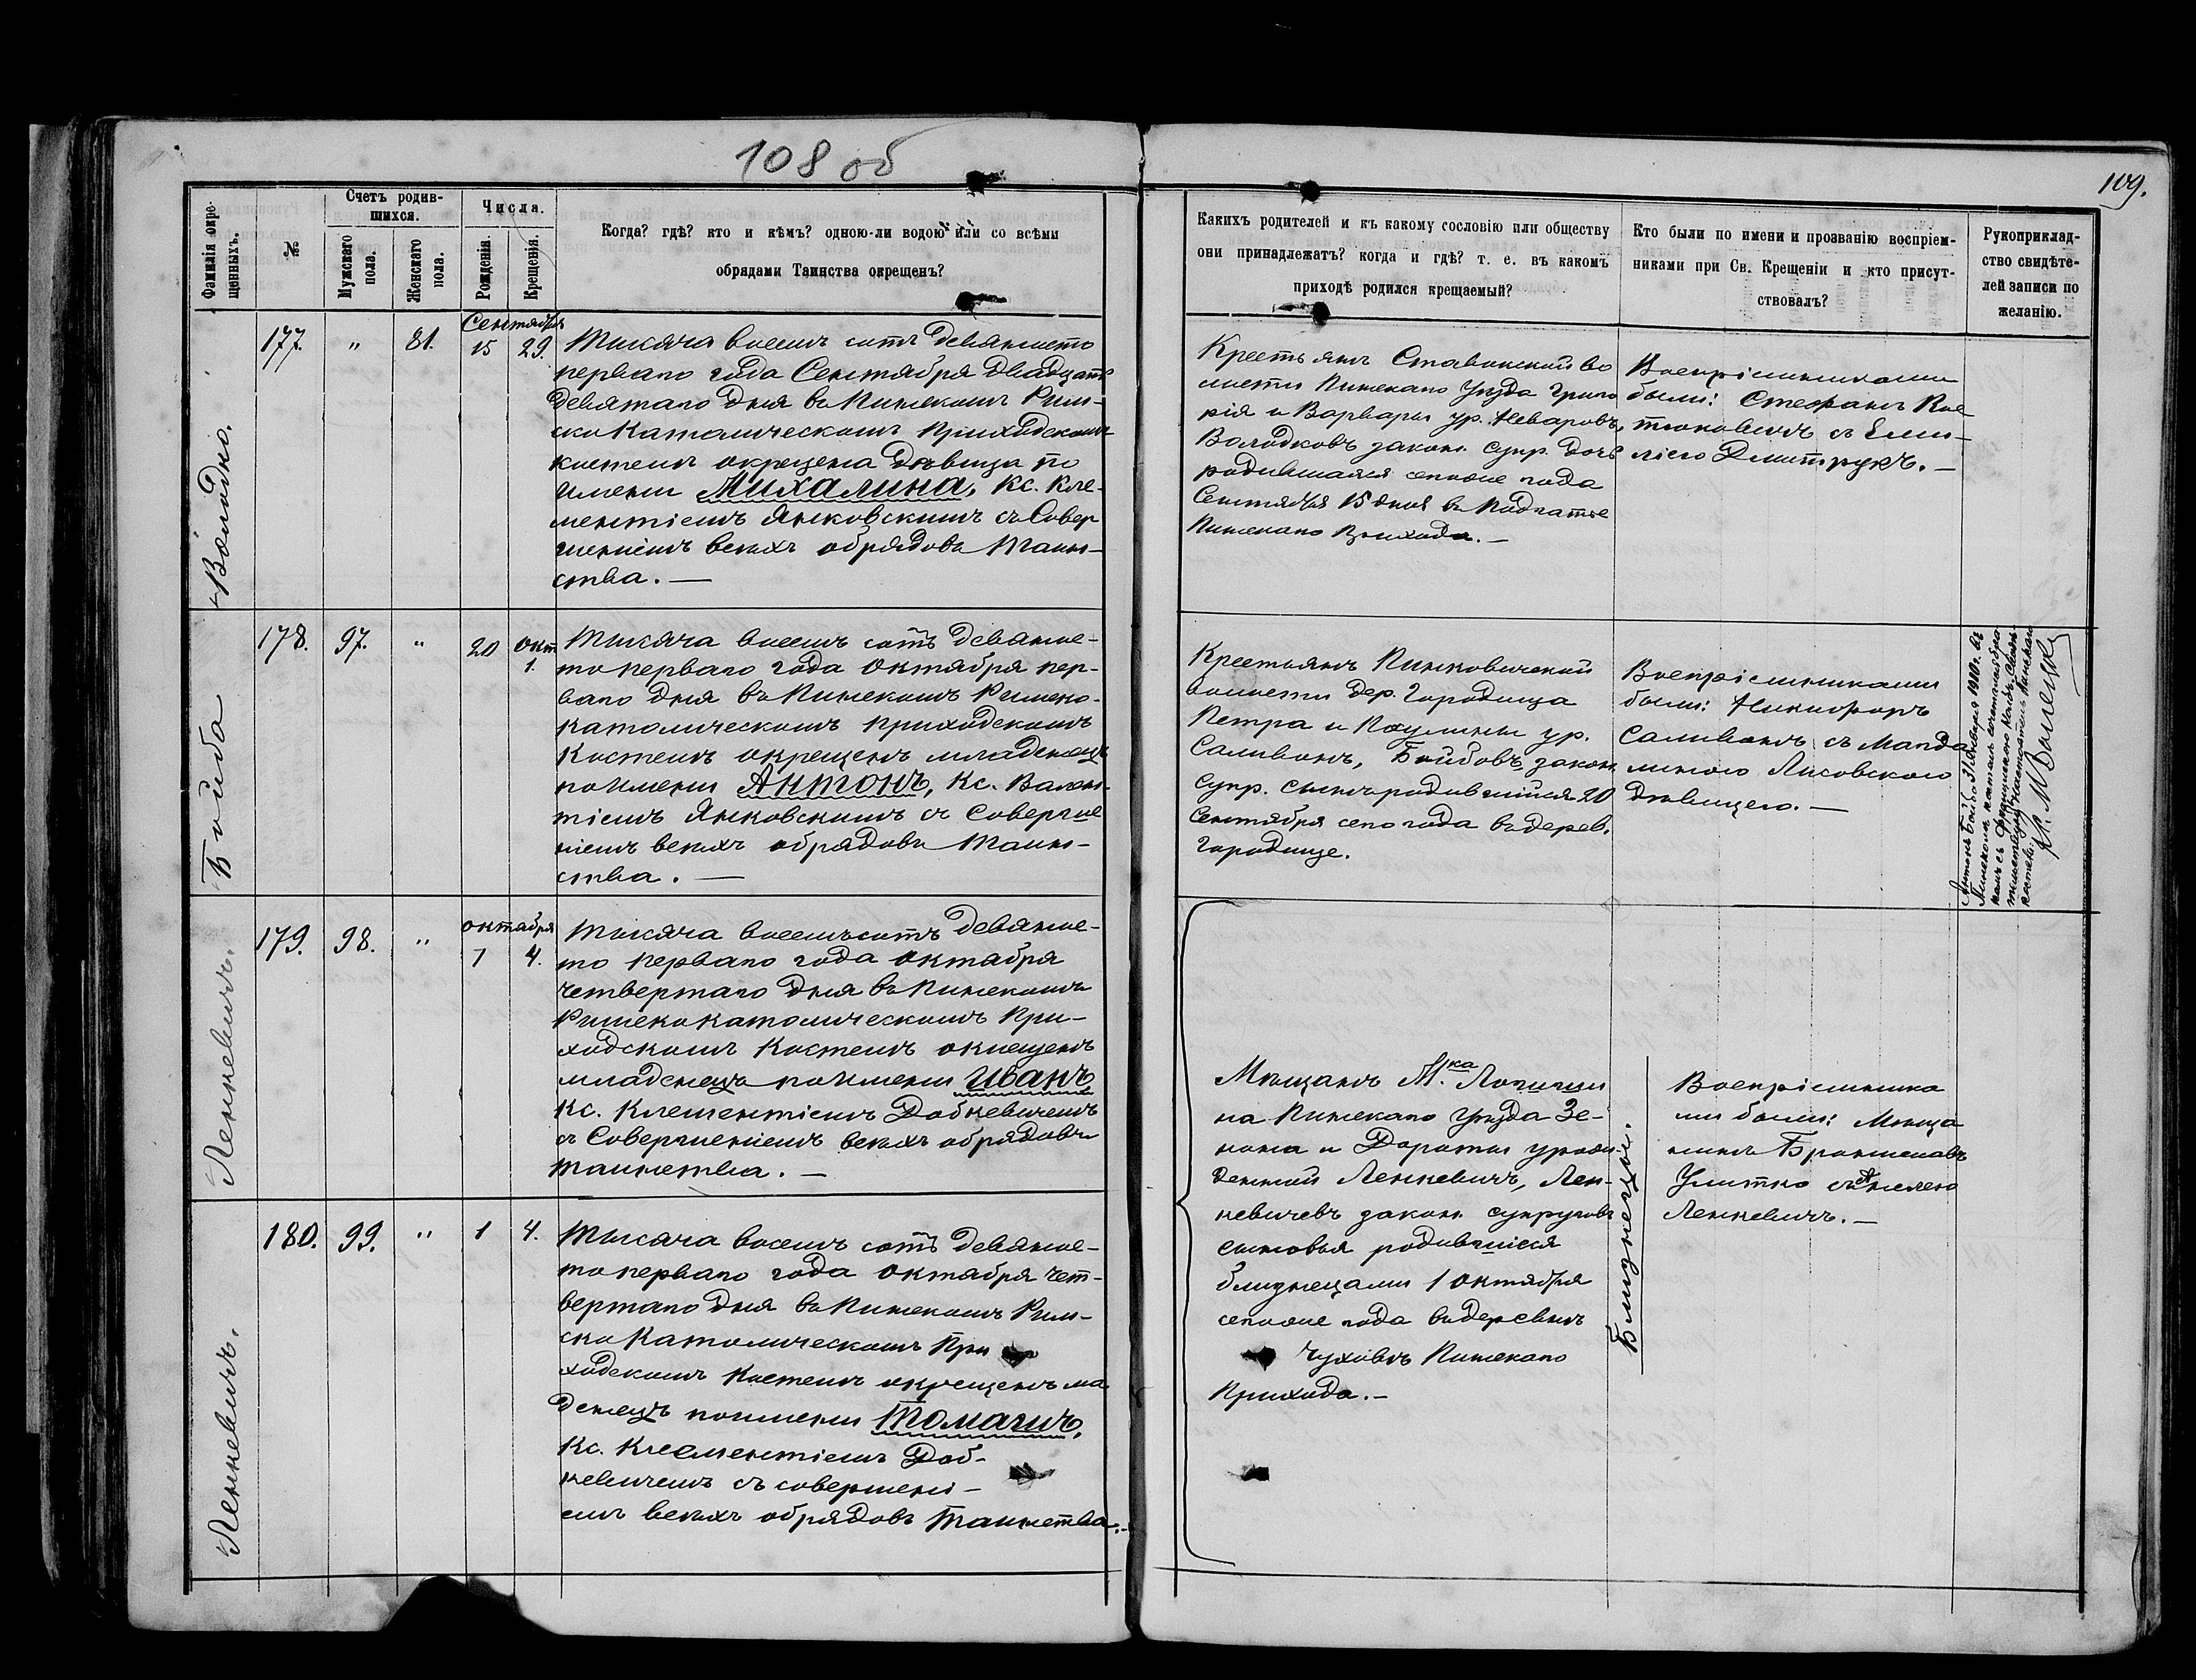 108 об
109.
Фамилія окре-
щенныхъ.
№
Счетъ родив-
шихся.
Мужскаго
пола.
Женскаго
пола.
Числа.
Рожденія.
Крещенія.
Когда? гдѣ? кто и кѣмъ? одною-ли водою или со всѣми
обрядами Таинства окрещенъ?
Какихъ родителей и къ какому сословію или обществу
они принадлежатъ? когда и гдѣ? т. е. въ какомъ
приходѣ родился крещаемый?
Кто были по имени и прозванію воспріем-
никами при Св. Крещеніи и кто присут-
ствовалъ?
Рукоприклад-
ство свидѣте-
лей записи по
желанію.
Володко.
177.
"
81.
Сентября
15 29.
Тысяча восемь сотъ девяносто
перваго года Сентября двадцать
девятаго дня въ Пинскомъ Рим-
ско Католическомъ Приходскомъ
костелѣ окрещена дѣвица по
имени Михалина, Кс. Кле-
ментіемъ Янковскимъ съ Совер
шеніемъ всѣхъ обрядовъ Таин-
ства. —
Крестьянъ Ставокской во
лости Пинскаго Уѣзда Григо
рія и Варвары ур. Неваровъ,
Володковъ закон. супр. дочь
родившаяся сегоже года
Сентября 15 дня въ
Пинскаго Прихода. —
Воспріемниками
были: Стефанъ Кос
тюковичъ съ Еми-
ліею Дмитрукъ. —
Бойба
178.
97.
"
20
Окт.
1.
Тысяча восемь сотъ девянос-
то перваго года Октября пер-
ваго дня въ Пинскомъ Римско-
католическомъ приходскомъ
Костелѣ окрещенъ младенецъ
по имени Антонъ, Кс.
тіемъ Янковскимъ съ Соверше
ніемъ всѣхъ обрядовъ Таин-
ства. —
Крестьянъ Пинковичской
волости дер. Городища
Петра и Паулины ур.
Саливонъ, Бойбовъ, закон.
супр. сынъ родившійся 20
Сентября сего года въ дерев.
Городище.
Воспріемниками
были: Никифоръ
Саливонъ съ Магда
линою Лисовскою
дѣвицею. —
Антонъ Бойба 31 Января 1910 г. въ
Пинскомъ костелѣ сочетался бра
комъ съ
Кс.
Ленкевичъ.
179.
98.
"
Октября
1 4.
Тысяча восемьсотъ девянос-
то перваго года Октября
четвертаго дня въ Пинскомъ
Римско католическомъ При-
ходскомъ Костелѣ окрещенъ
младенецъ по имени Иванъ,
Кс. Клементіемъ Добкевичемъ
съ Совершеніемъ всѣхъ обрядовъ
таинства. —
Мѣщанъ М.ка Логиши
на Пинскаго Уѣзда Зе-
нона и Дороты урож-
денной Ленкевичъ, Лен-
кевичевъ закон. супруговъ
сыновья родившіеся
близнецами 1 Октября
сегоже года въ деревнѣ
Чуховѣ Пинскаго
Прихода. —
Близнецы.
Воспріемника
ми были: Мѣща
нинъ Брониславъ
Улитко съ Анелею
Ленкевичъ. —
Ленкевичъ.
180.
99.
"
1 4.
Тысяча восемь сотъ девянос-
то перваго года Октября чет-
вертаго дня въ Пинскомъ Рим-
ско Католическомъ При
ходскомъ Костелѣ окрещенъ мла
денецъ по имени Томашъ,
Кс. Клементіемъ Доб-
кевичемъ съ совершені-
емъ всѣхъ обрядовъ таинства. —